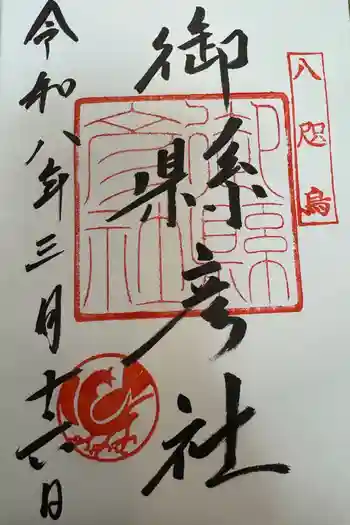 八咫烏
御縣彦社
御縣彦社
令和八年三月十六日